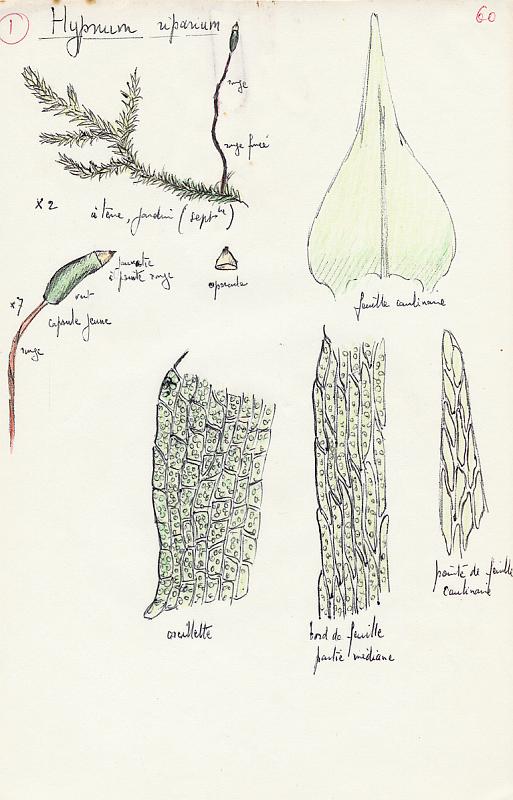 1
Hypnum riparium
60
rouge
rouge foncé
x 2
à terre, jardin (septbre)
jaunâtre
à pointe rouge
vert
opercule
x 7
capsule jeune
rouge
feuille caulinaire
oreillette
bord de feuille
partie médiane
pointe de feuille
caulinaire